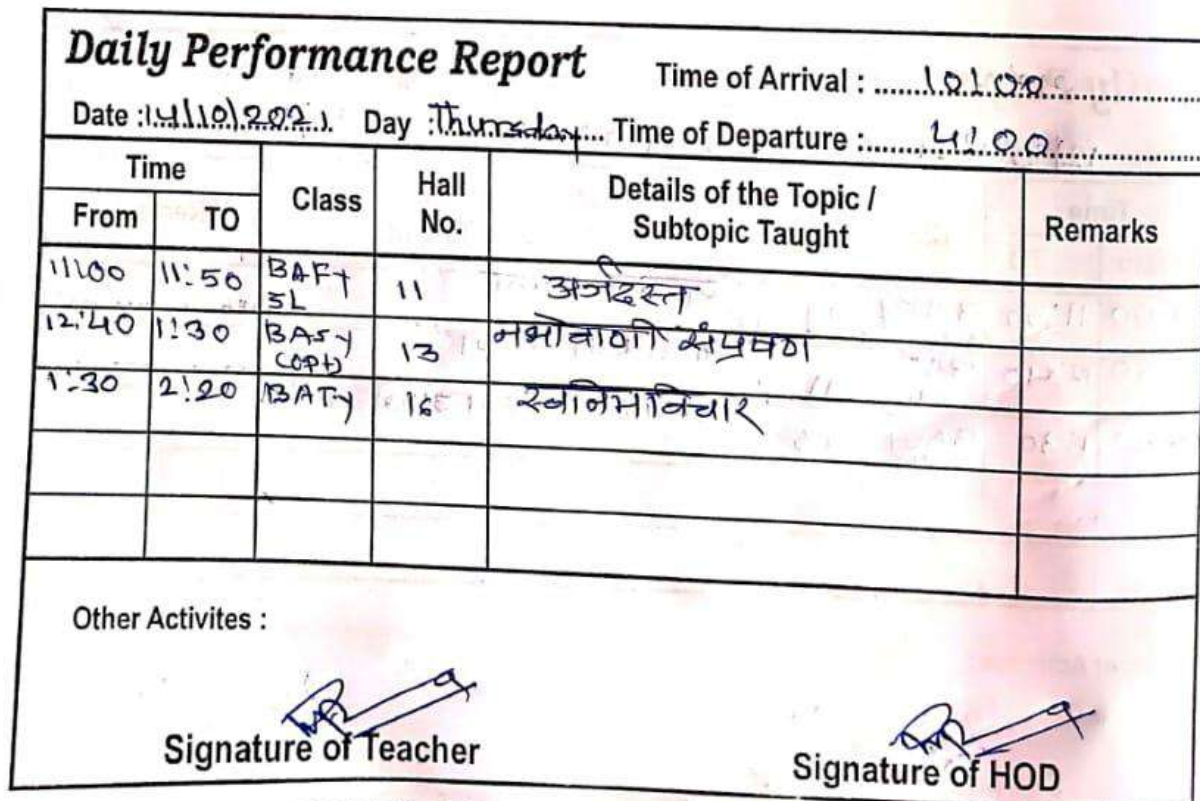 Daily Performance Report
Time of Arrival : 10:00
Date : 14/10/2021 Day : Thursday Time of Departure : 4:00
Time Class Hall No. Details of the Topic / Subtopic Taught Remarks
From TO
11:00 11:50 BAFy SL 11
12:40 1:30 BASy (opt) 13 नभोवाणी संप्रेषण
1:30 2:20 BATy 16 स्वनिमविचार
Other Activites :
Signature of Teacher
Signature of HOD